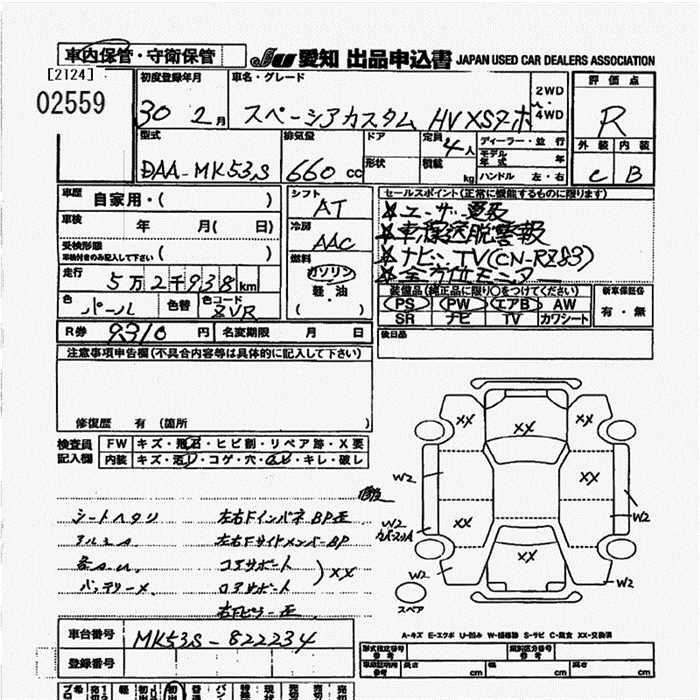 車内保管・守衛保管
JU 愛知 出品申込書 JAPAN USED CAR DEALERS ASSOCIATION
[2124]
02559
初度登録年月 車名・グレード 2WD 4WD 評価点
30 2月 スペーシアカスタム HV XSターボ R
型式 排気量 ドア 定員 ディーラー・並行 外装 内装
DAA-MK53S 660 cc 形状 4人 積載 kg モデル年式 年 ハンドル 左・右 C B
車歴 自家用・( )
車検 年 月( 日)
受検形態 車検付きのみ記入して下さい ( )
走行 5万2千938km
色 パール 色替 色コード ZVR
シフト AT
冷房 AAC
燃料 ガソリン 軽・油 ( )
セールスポイント(正常に機能するものに限ります)
ユーザー買取
車線逸脱警報
ナビ、TV(CN-RZ83)
全方位モニター
装備品(純正品に限り○をつけてください) 新車保証書
PS PW エアB AW 有・無
SR ナビ TV カワシート
R券 9310 円 名変期限 月 日
後日品
注意事項申告欄(不具合内容等は具体的に記入して下さい)
修復歴 有 (箇所 )
検査員記入欄 FW キズ・飛石・ヒビ割・リペア跡・X要
内装 キズ・汚レ・コゲ・穴・スレ・キレ・破レ
シートヘタリ 左右Fインパネ BP正
アルミA 左右Fサイドメンバー BP
コアサポート
バッテリーメ ロアサポート
)XX
右Fピラー正
XX
XX
XX
XX
XX
XX
W2
W2
W2
W2
W2
スペア
A-キズ E-エクボ U-凹み W-補修跡 S-サビ C-腐食 XX-交換済
車台番号 MK53S-822234
登録番号
型式指定番号 参考 類別区分番号 参考
長さ cm 幅 cm 高さ cm